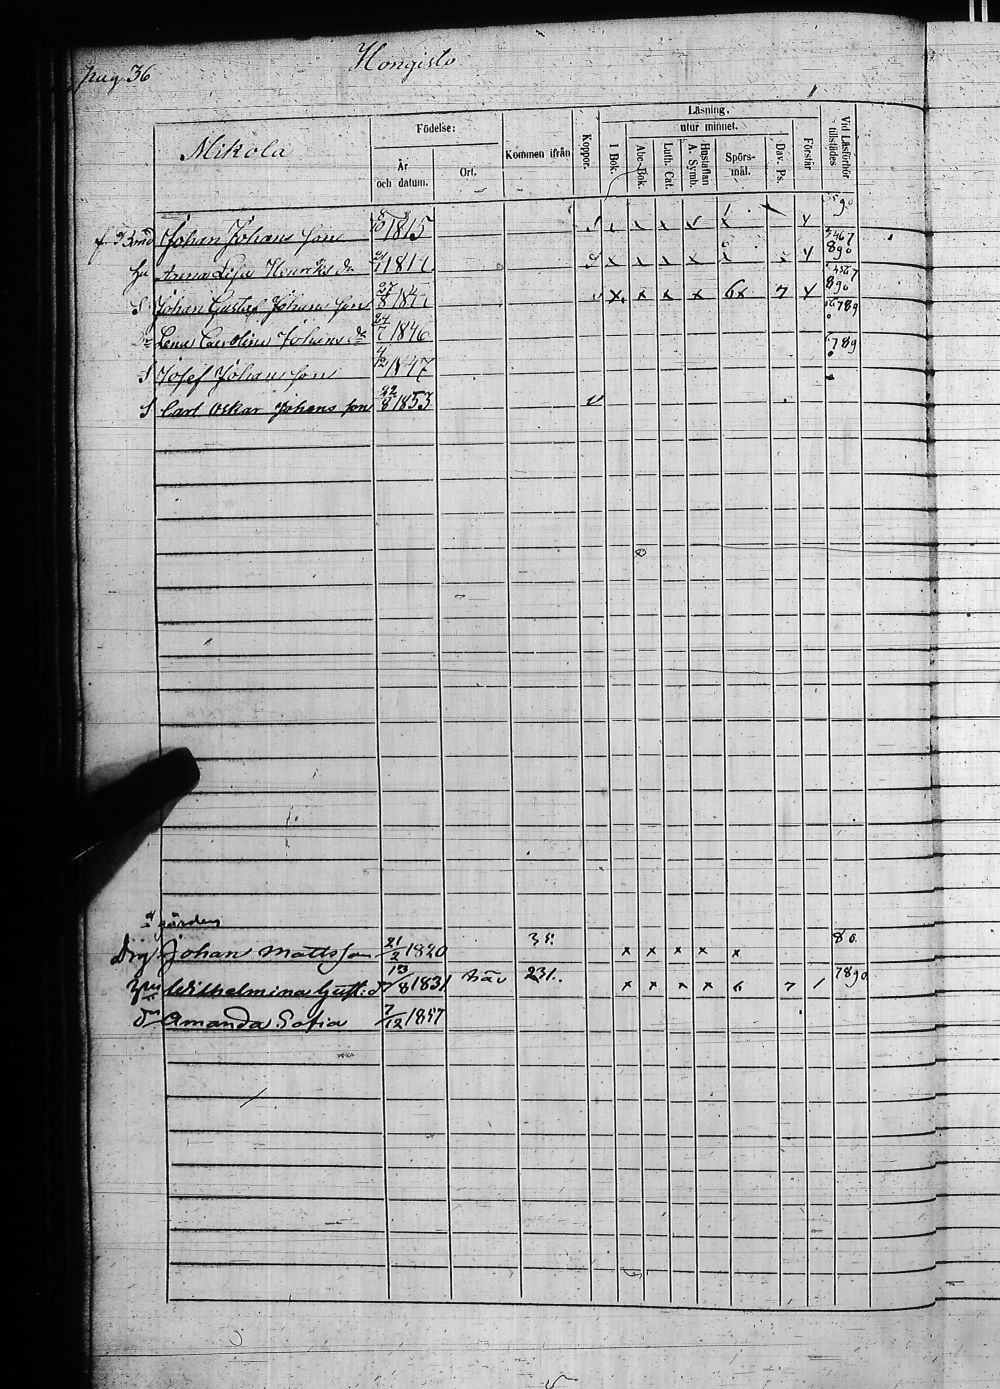 pag 36 Hongisto
Mikola Födelse: År och datum. Ort. Kommen ifrån Koppor. Läsning. I Bok. utur minnet. Abc-Bok. Luth. Cat. Hustaflan A. Symb. Spörs-mål. Dav. Ps. Förstår Vid Läsförhör tillstädes
Johan Johans son 8/10 1815 90
hu Anna Lisa Henriks dr 1817 890
S Johan Gustaf Johans son 27/8 184 v x x x x 6x 7 890
Dr Lena Carolina Johans dr 24/7 1846 6789
S Josef Johans son 4/12 1847 6789
S Carl Oskar Johans son 22/8 1853 v
gården
Drg Johan Matts son 21/2 1820 38. x x x x x 80.
Wilhelmina Gust. d 13/8 1831 231. x x x x 6 7 1 7890
dr Amanda Sofia 7/12 1857